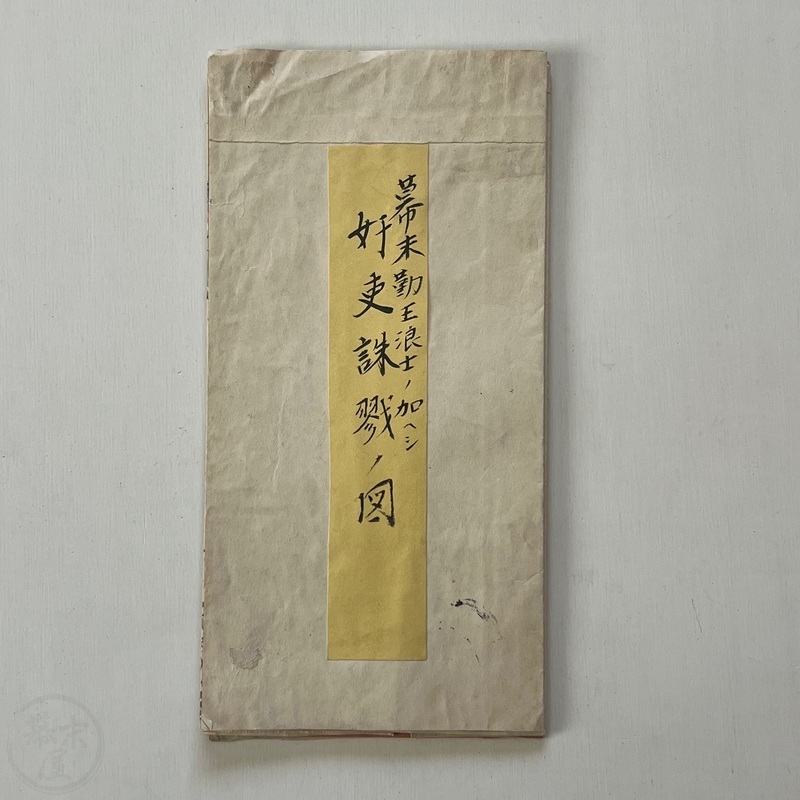 幕末勤王浪士ノ加ヘシ
奸吏誅戮ノ図
幕末屋